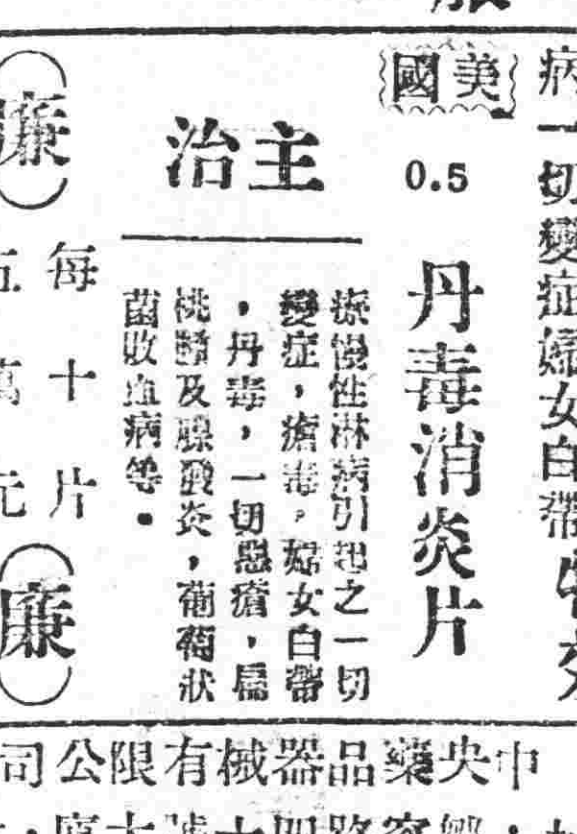 病一切變症婦女白帶
美國
0.5
丹毒消炎片
主治
療慢性淋病引起之一切
變症，瘡毒，婦女白帶
，丹毒，一切惡瘡，扁
桃腺及腺炎，葡萄狀
菌敗血病等。
廉
每十片
五萬元
廉
中央藥品器械有限公司